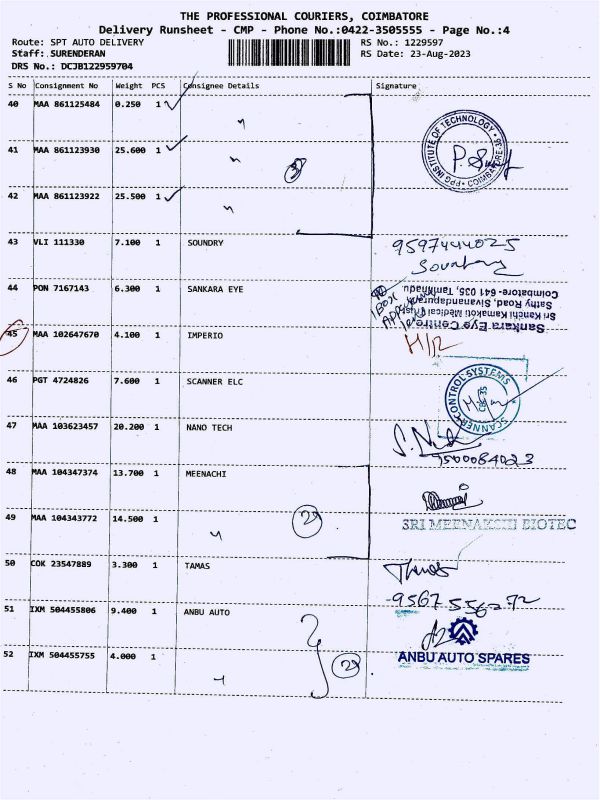 THE PROFESSIONAL COURIERS, COIMBATORE
Delivery Runsheet - CMP - Phone No.:0422-3505555 - Page No.:4
Route: SPT AUTO DELIVERY RS No.: 1229597
Staff: SURENDERAN RS Date: 23-Aug-2023
DRS No.: DCJB122959704
S No Consignment No Weight PCS Consignee Details Signature
40 MAA 861125484 0.250 1 "
PPG INSTITUTE OF TECHNOLOGY • COIMBATORE-35
41 MAA 861123930 25.600 1 "
42 MAA 861123922 25.500 1 "
43 VLI 111330 7.100 1 SOUNDRY 9597444025
44 PON 7167143 6.300 1 SANKARA EYE
Sankara Eye Centre
Sri Kanchi Kamakoti Medical Trust
Sathy Road, Sivanandapuram,
Coimbatore- 641 035, Tamilnadu
45 MAA 102647670 4.100 1 IMPERIO H/R
46 PGT 4724826 7.600 1 SCANNER ELC
SCANNER CONTROL SYSTEMS CBE-35
47 MAA 103623457 20.200 1 NANO TECH
9500084023
48 MAA 104347374 13.700 1 MEENACHI
49 MAA 104343772 14.500 1 " 29 SRI MEENAKSHI BIOTEC
50 COK 23547889 3.300 1 TAMAS Thamas
9567556292
51 IXM 504455806 9.400 1 ANBU AUTO
ANBU AUTO SPARES
52 IXM 504455755 4.000 1 " 29